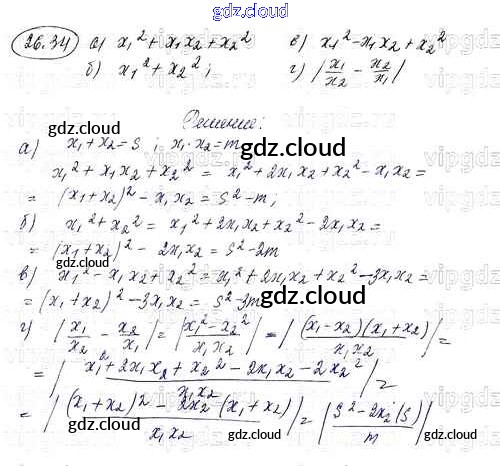 gdz.cloud
26.34 а) x₁² + x₁x₂ + x₂² в) x₁² - x₁x₂ + x₂²
б) x₁² + x₂²; г) |x₁/x₂ - x₂/x₁|
Решение:
а) x₁ + x₂ = S; x₁·x₂ = m
x₁² + x₁x₂ + x₂² = x₁² + 2x₁x₂ + x₂² - x₁x₂ =
= (x₁ + x₂)² - x₁x₂ = S² - m;
б) x₁² + x₂² = x₁² + 2x₁x₂ + x₂² - 2x₁x₂ =
= (x₁ + x₂)² - 2x₁x₂ = S² - 2m
в) x₁² - x₁x₂ + x₂² = x₁² + 2x₁x₂ + x₂² - 3x₁x₂ =
= (x₁ + x₂)² - 3x₁x₂ = S² - 3m
г) |x₁/x₂ - x₂/x₁| = |(x₁² - x₂²)/(x₁x₂)| = |((x₁ - x₂)(x₁ + x₂))/(x₁x₂)| =
= |(x₁² + 2x₁x₂ + x₂² - 2x₁x₂ - 2x₂²)/(x₁x₂)| =
= |((x₁ + x₂)² - 2x₂(x₁ + x₂))/(x₁x₂)| = |(S² - 2x₂(S))/m|